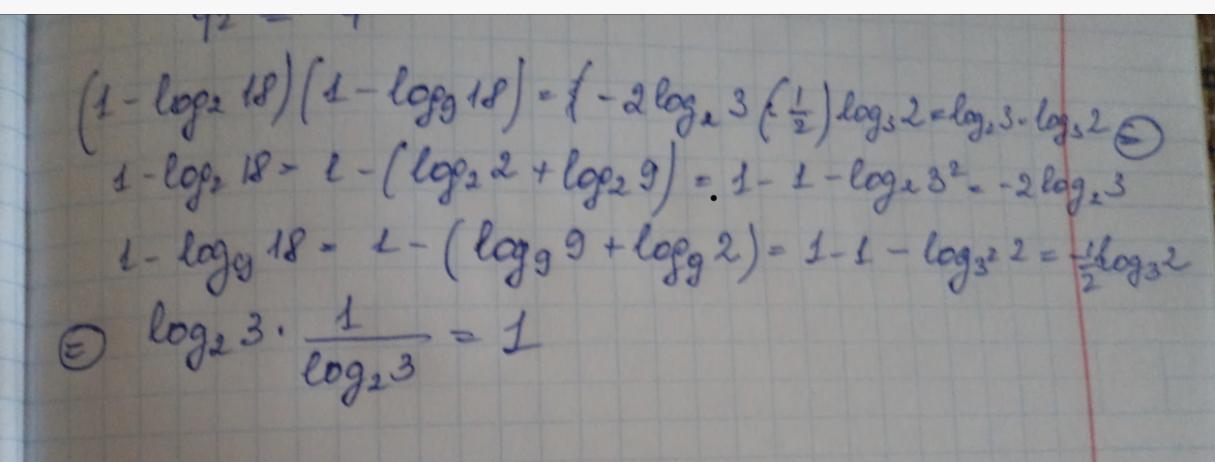 (1 - log₂ 18)(1 - log₉ 18) = (-2 log₂ 3 (-1/2) log₃ 2 = log₂ 3 · log₃ 2 =
1 - log₂ 18 = 1 - (log₂ 2 + log₂ 9) = 1 - 1 - log₂ 3² = -2 log₂ 3
1 - log₉ 18 = 1 - (log₉ 9 + log₉ 2) = 1 - 1 - log₃² 2 = -1/2 log₃ 2
= log₂ 3 · 1/log₂ 3 = 1